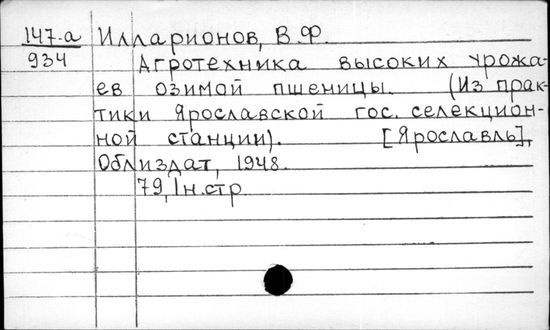 147-а Илларионов, В.Ф.
934 Агротехника высоких урожа-
ев озимой пшеницы. (Из прак-
тики Ярославской гос. селекцион-
ной станции). [Ярославль],
Облиздат, 1948.
79, 1 н.стр